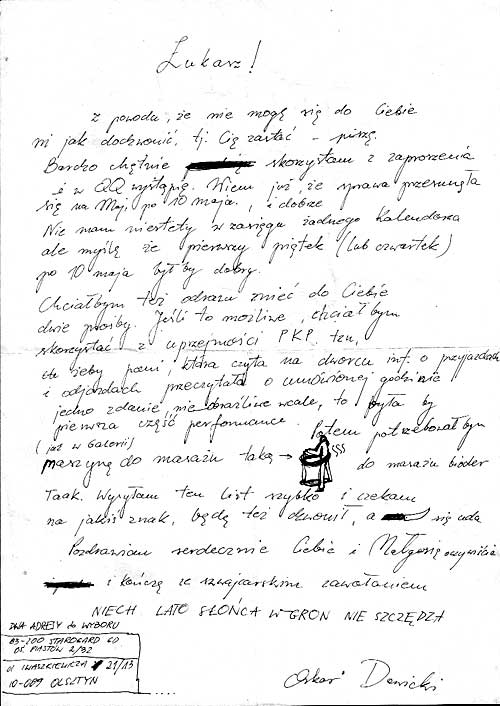 Łukasz!
z powodu, że nie mogę się do Ciebie
ni jak dodzwonić, tj. Cię zastać – piszę.
Bardzo chętnie skorzystam z zaproszenia
i w QQ wystąpię. Wiem już, że sprawa przesunęła
się na Maj, po 10 maja, i dobrze
Nie mam niestety w zasięgu żadnego Kalendarza
ale myślę że pierwszy piątek (lub czwartek)
po 10 maja byłby dobry.
Chciałbym też odrazu znieść do Ciebie
dwie prośby. Jeśli to możliwe, chciałbym
skorzystać z uprzejmości PKP. tzn,
żeby pani, która czyta na dworcu inf. o przyjazdach
i odjazdach przeczytała o umówionej godzinie
jedno zdanie, nie obraźliwe wcale, to była by
pierwsza część performance. Potem potrzebowałbym
(już w Galerii)
maszynę do masażu taką → do masażu bioder
Taak. Wysyłam ten list szybko i czekam
na jakiś znak, będę też dzwonił, a się uda
Pozdrawiam serdecznie Ciebie i Małgosię oczywiście
i kończę ze szwajcarskim zawołaniem
NIECH LATO SŁOŃCA W GRON NIE SZCZĘDZI
DWA ADRESY do WYBORU
83-200 STAROGARD GD
OŚ. PIASTÓW 2/32
ul IWASZKIEWICZA 21/13
10-089 OLSZTYN
Oskar Dawicki